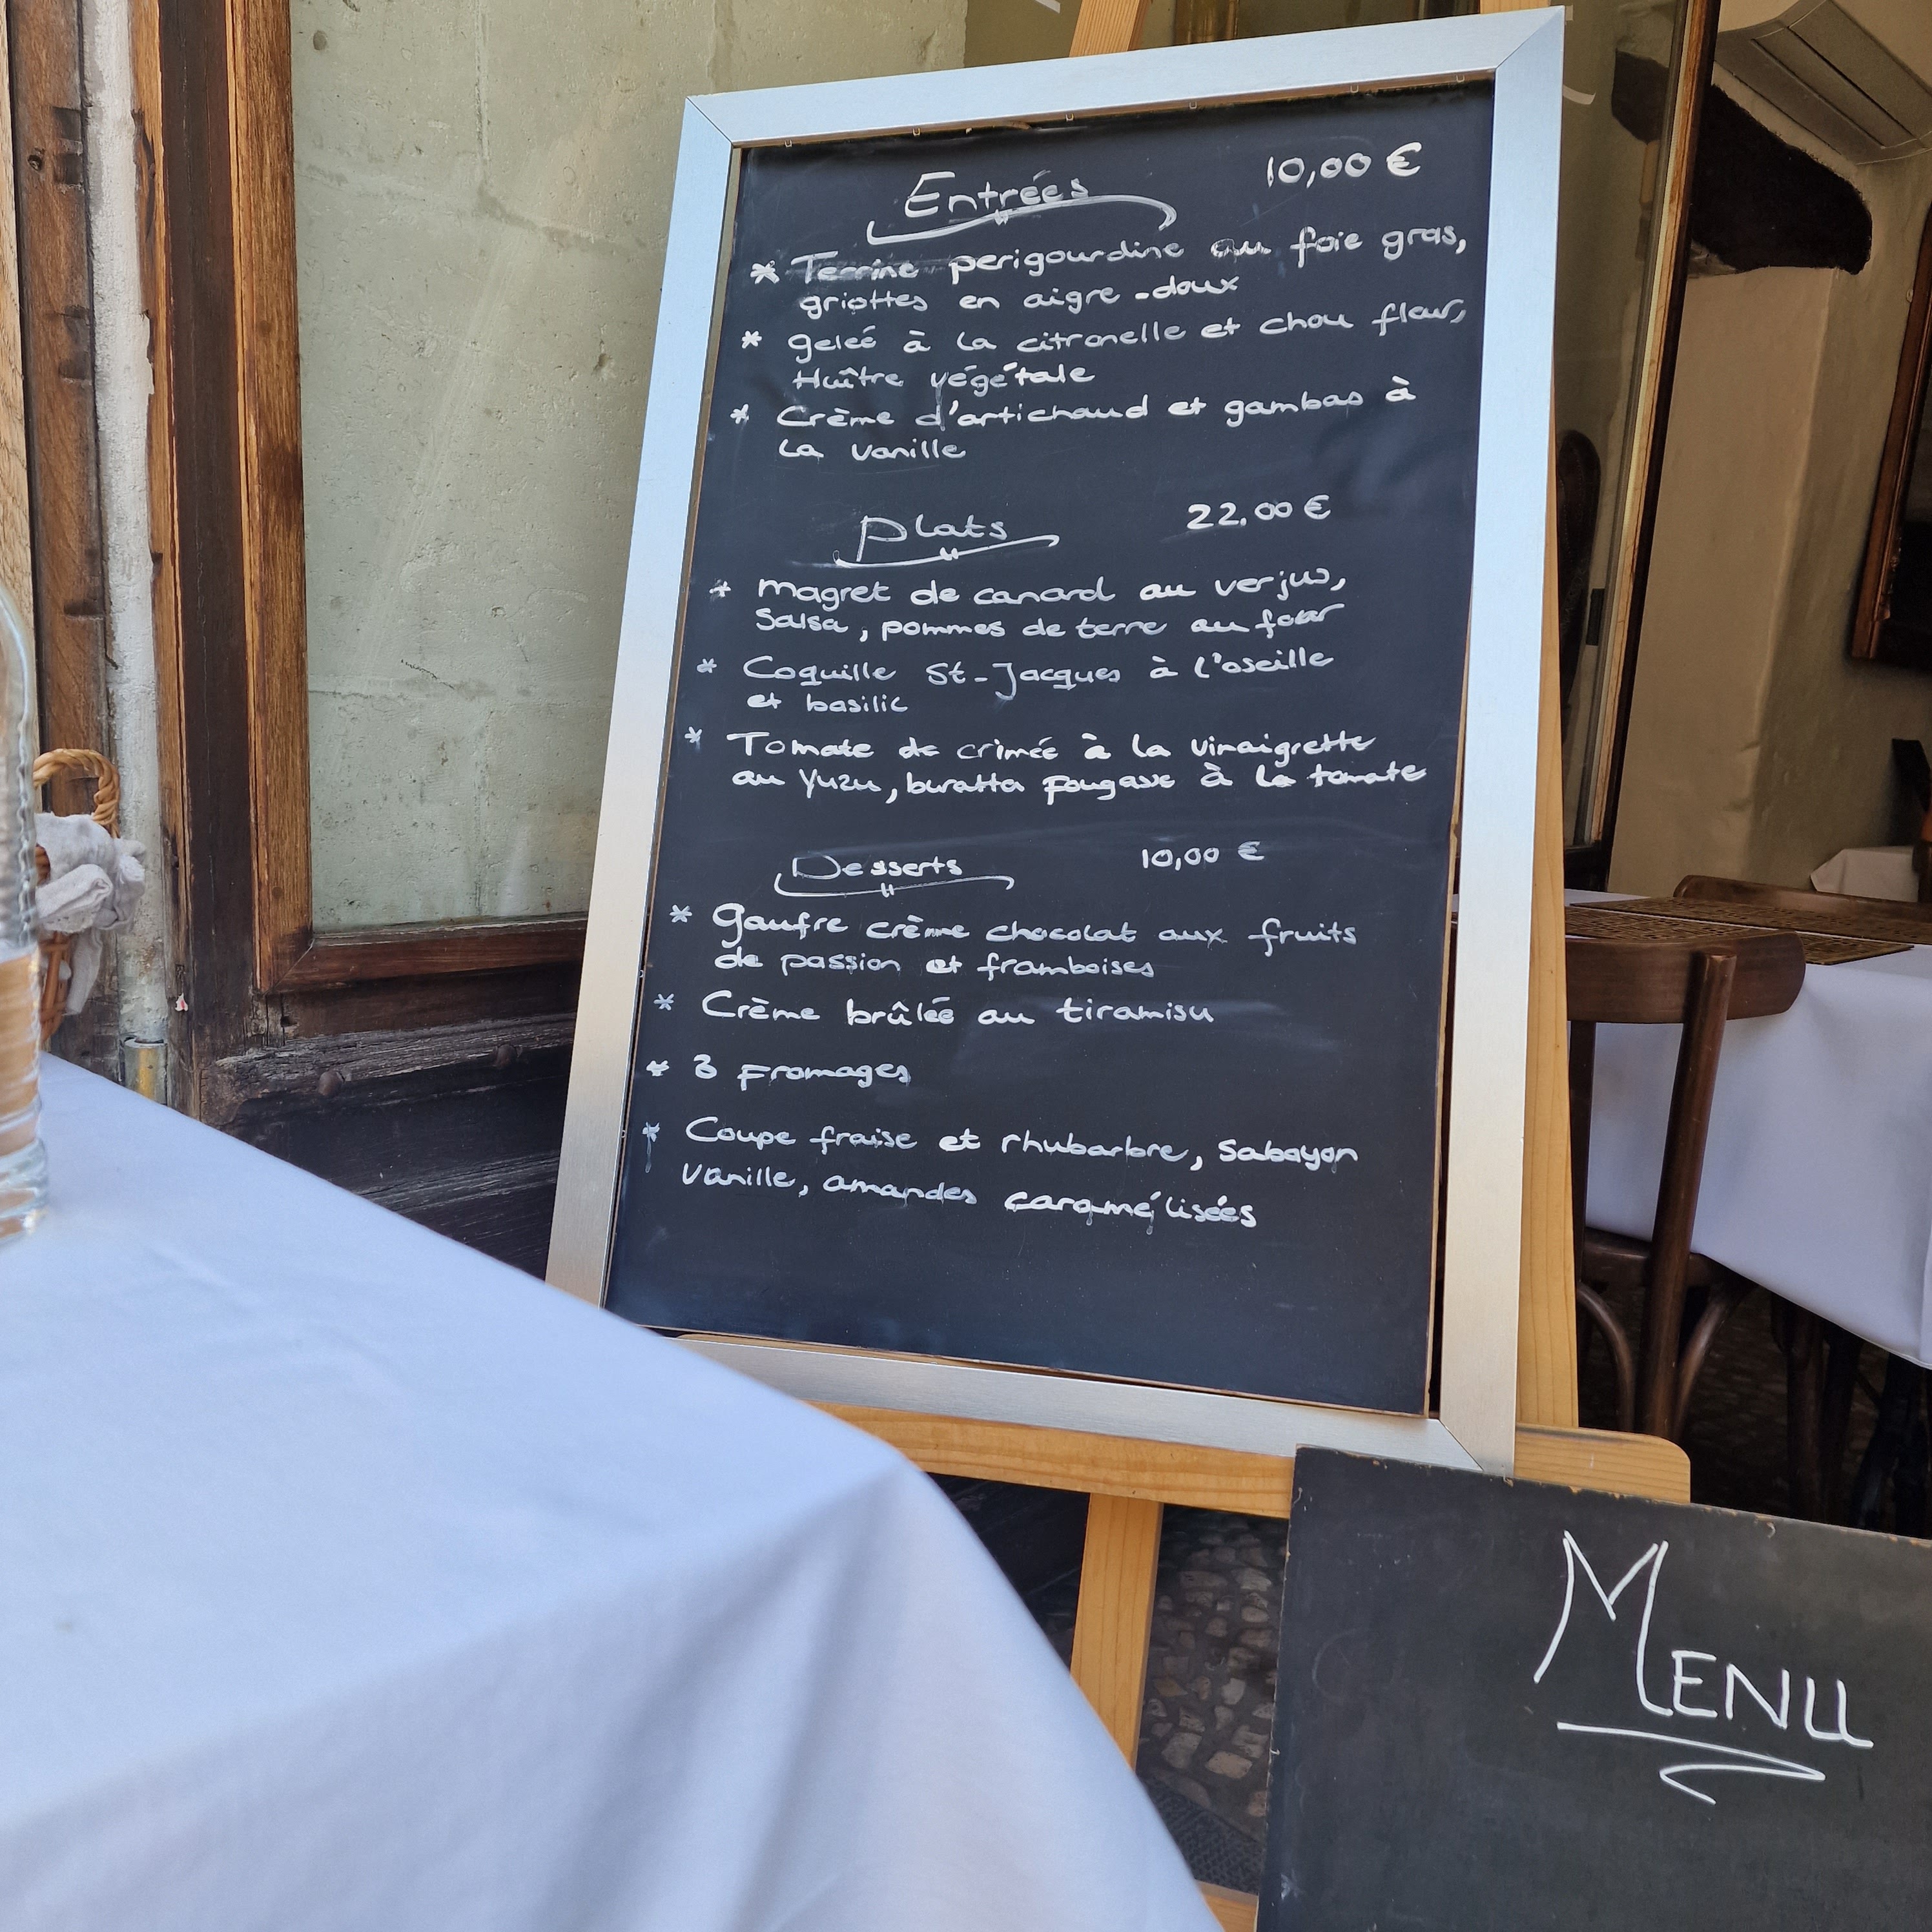 Entrées 10,00 €
* Terrine perigourdine au foie gras,
griottes en aigre-doux
* geleé à la citronelle et chou fleur,
Huître végétale
* Crème d'artichaud et gambas à
la vanille
Plats 22,00 €
* magret de canard au verjus,
Salsa, pommes de terre au four
* Coquille St-Jacques à l'oseille
et basilic
* Tomate de crimée à la vinaigrette
au Yuzu, buratta fougasse à la tomate
Desserts 10,00 €
* gaufre crème chocolat aux fruits
de passion et framboises
* Crème brûlée au tiramisu
* 3 Fromages
* Coupe fraise et rhubarbre, Sabayon
Vanille, amandes caramélisées
MENU